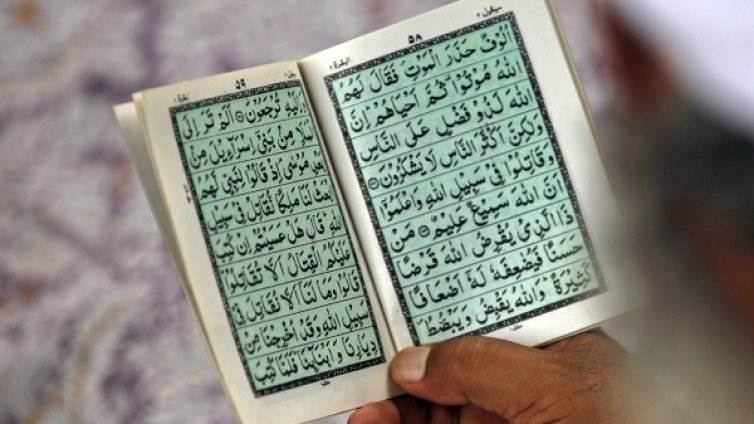 سيقول ٢ ٥٨ البقرة ٢
اُلُوْفٌ حَذَرَ الْمَوْتِ فَقَالَ لَهُمُ
اللّٰهُ مُوْتُوْا ثُمَّ اَحْيَاهُمْ اِنَّ
اللّٰهَ لَذُوْ فَضْلٍ عَلَى النَّاسِ
وَلٰكِنَّ اَكْثَرَ النَّاسِ لَا يَشْكُرُوْنَ
وَقَاتِلُوْا فِيْ سَبِيْلِ اللّٰهِ وَاعْلَمُوْا
اَنَّ اللّٰهَ سَمِيْعٌ عَلِيْمٌ مَنْ
ذَا الَّذِيْ يُقْرِضُ اللّٰهَ قَرْضًا
حَسَنًا فَيُضٰعِفَهٗ لَهٗ اَضْعَافًا
كَثِيْرَةً وَاللّٰهُ يَقْبِضُ وَيَبْصُطُ
٥٩
وَاِلَيْهِ تُرْجَعُوْنَ اَلَمْ تَرَ اِلَى
الْمَلَاِ مِنْ بَنِيْ اِسْرَآءِيْلَ مِنْ
بَعْدِ مُوْسٰى اِذْ قَالُوْا لِنَبِيٍّ لَّهُمُ
ابْعَثْ لَنَا مَلِكًا نُّقَاتِلْ فِيْ سَبِيْلِ
اللّٰهِ قَالَ هَلْ عَسَيْتُمْ اِنْ كُتِبَ
عَلَيْكُمُ الْقِتَالُ اَلَّا تُقَاتِلُوْا
قَالُوْا وَمَا لَنَا اَلَّا نُقَاتِلَ فِيْ
سَبِيْلِ اللّٰهِ وَقَدْ اُخْرِجْنَا مِنْ
دِيَارِنَا وَاَبْنَآئِنَا فَلَمَّا كُتِبَ